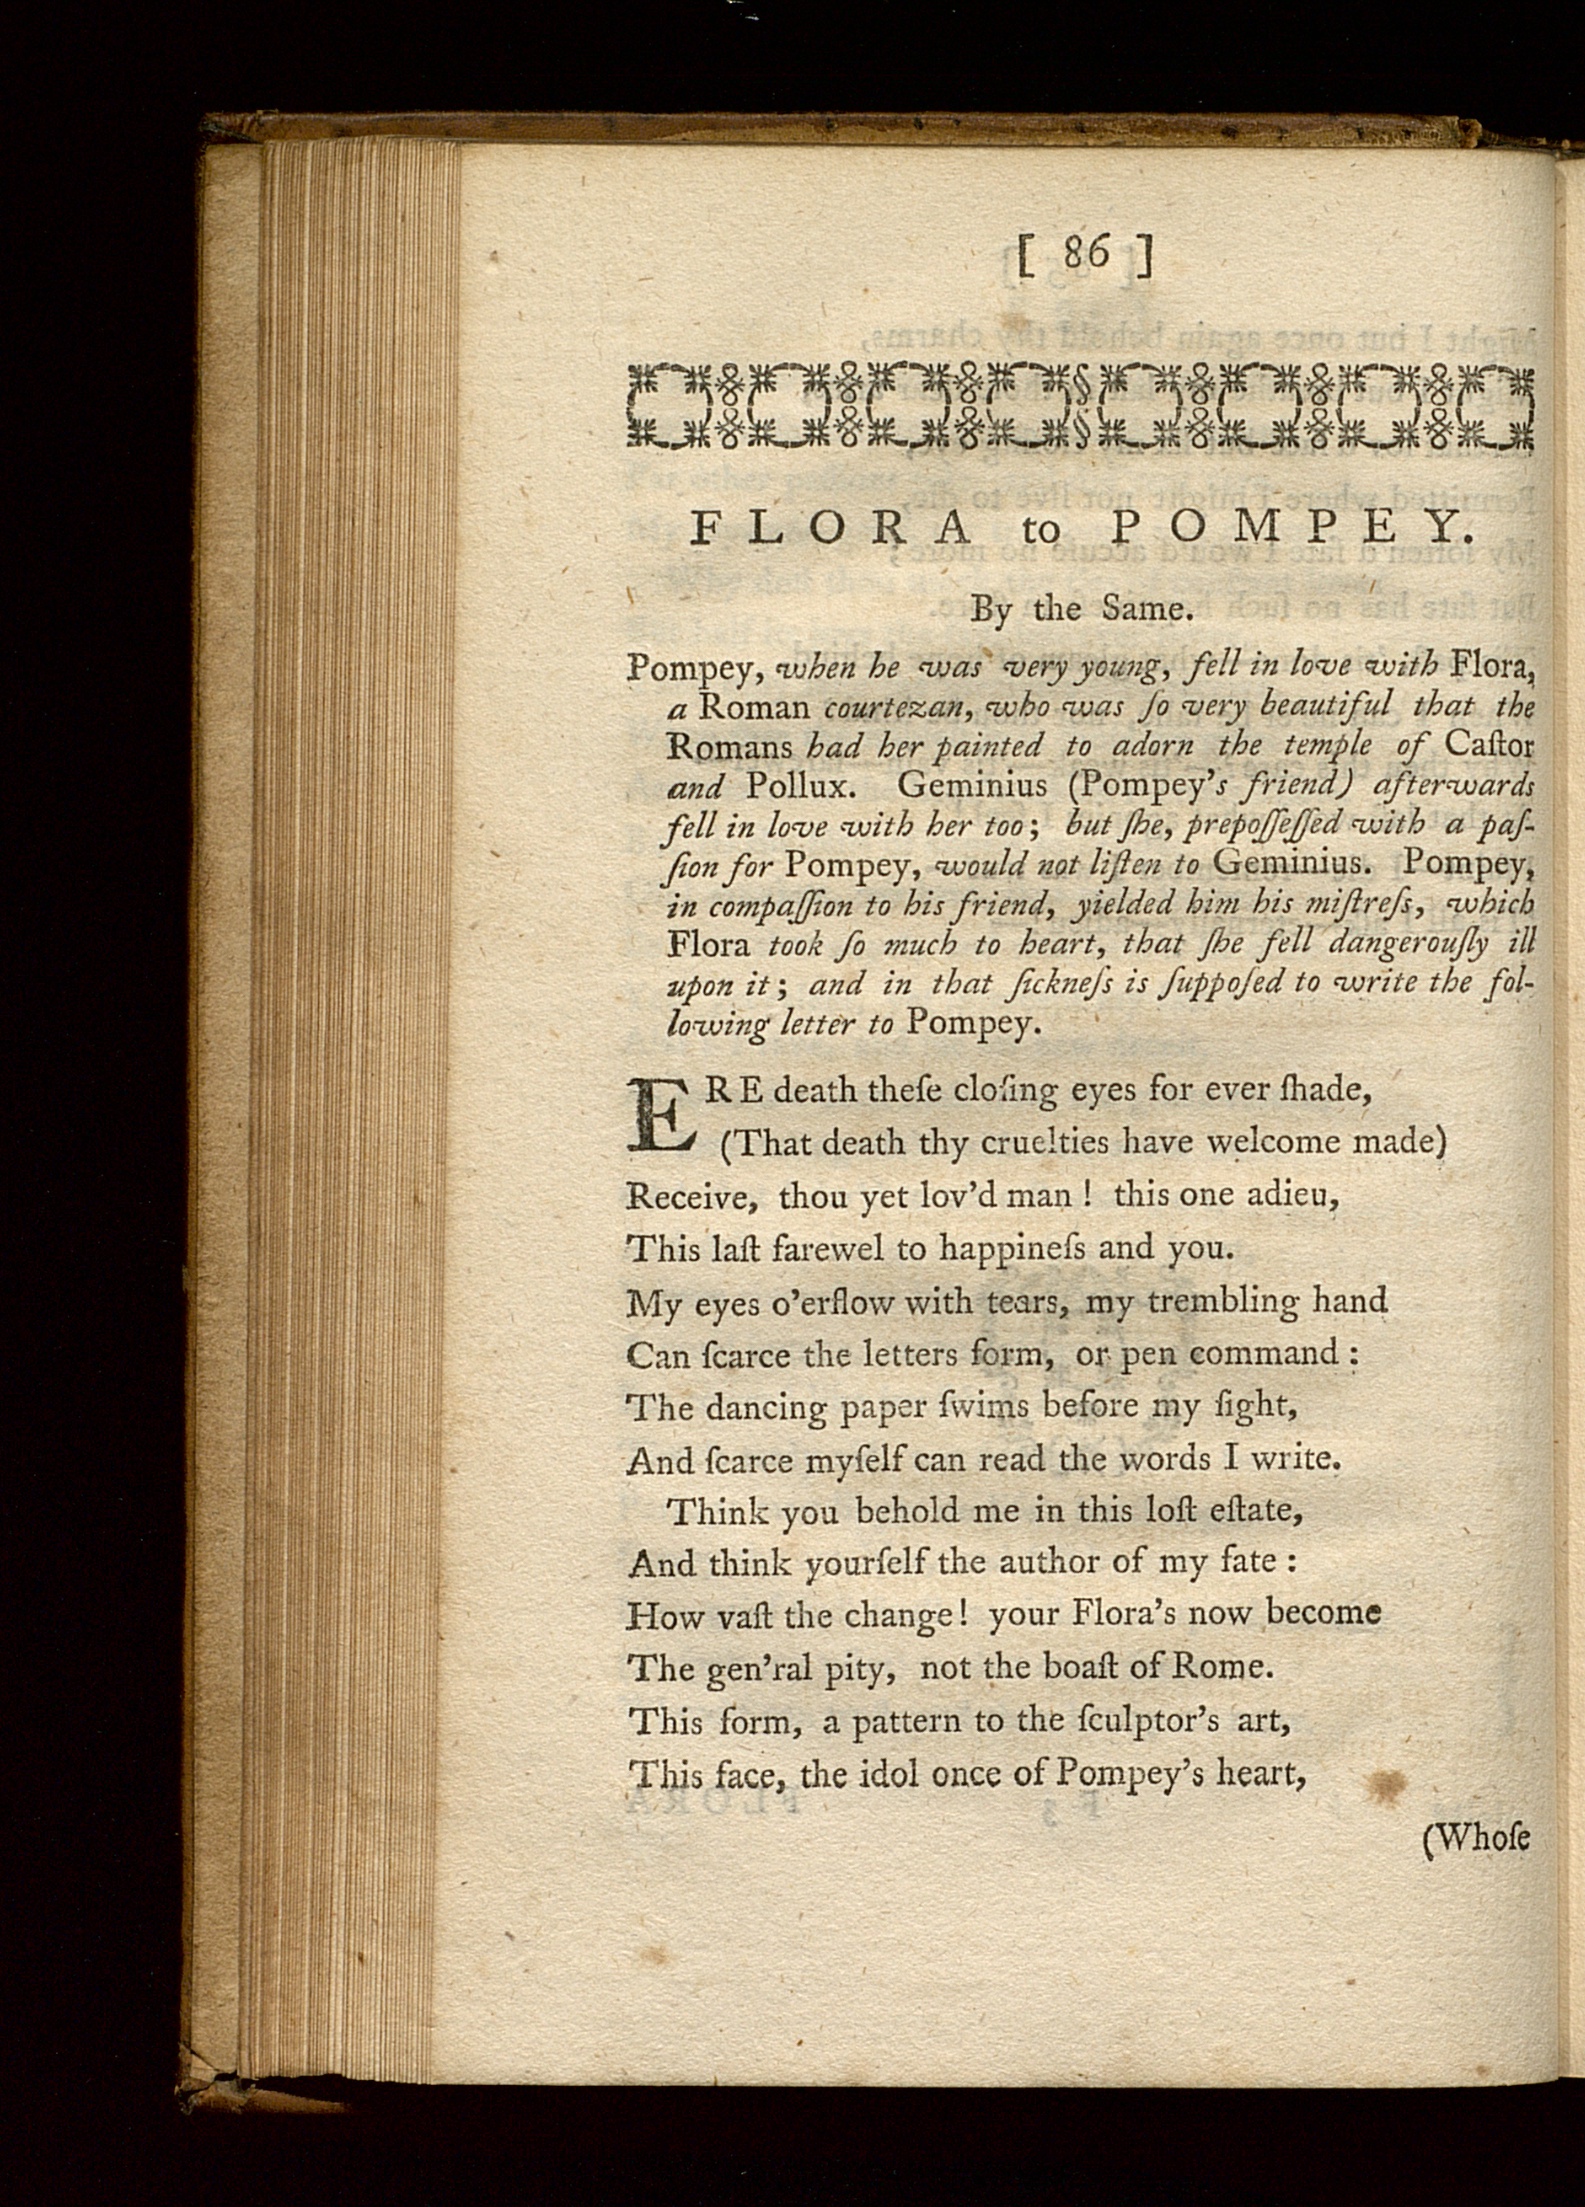 [ 86 ]
FLORA to POMPEY.
By the Same.
Pompey, when he was very young, fell in love with Flora,
a Roman courtezan, who was ſo very beautiful that the
Romans had her painted to adorn the temple of Caſtor
and Pollux. Geminius (Pompey's friend) afterwards
fell in love with her too; but ſhe, prepoſſeſſed with a paſ-
ſion for Pompey, would not liſten to Geminius. Pompey,
in compaſſion to his friend, yielded him his miſtreſs, which
Flora took ſo much to heart, that ſhe fell dangerouſly ill
upon it; and in that ſickneſs is ſuppoſed to write the fol-
lowing letter to Pompey.
ERE death theſe cloſing eyes for ever ſhade,
(That death thy cruelties have welcome made)
Receive, thou yet lov'd man! this one adieu,
This laſt farewel to happineſs and you.
My eyes o'erflow with tears, my trembling hand
Can ſcarce the letters form, or pen command:
The dancing paper ſwims before my ſight,
And ſcarce myſelf can read the words I write.
Think you behold me in this loſt eſtate,
And think yourſelf the author of my fate:
How vaſt the change! your Flora's now become
The gen'ral pity, not the boaſt of Rome.
This form, a pattern to the ſculptor's art,
This face, the idol once of Pompey's heart,
(Whoſe